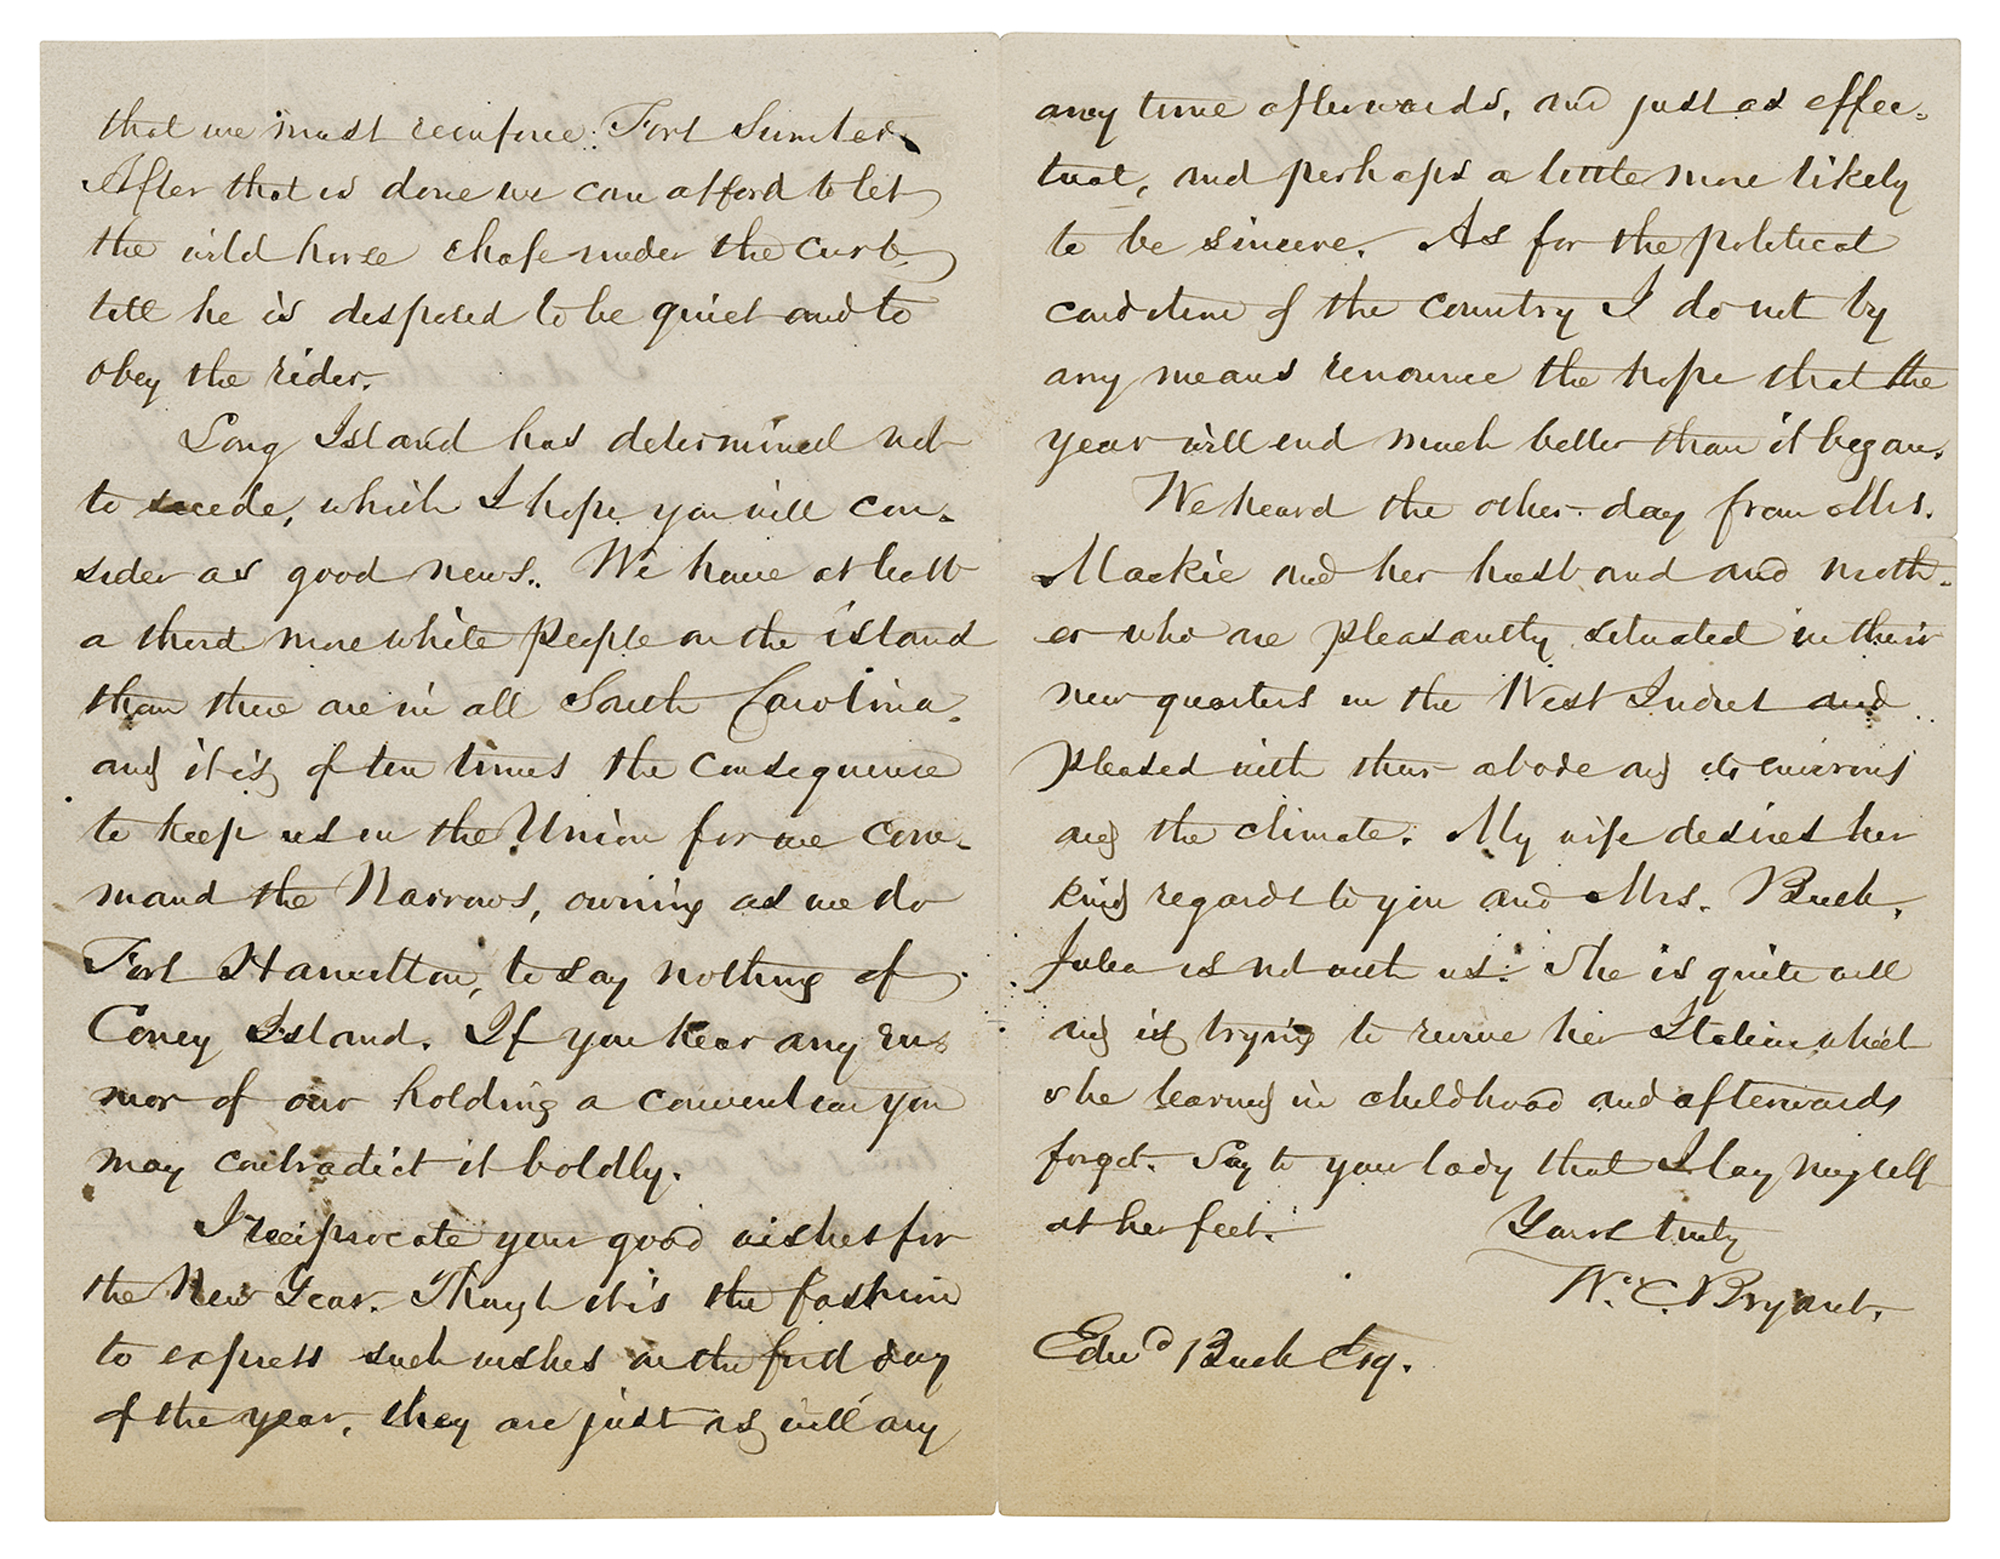 that we must reinforce Fort Sumter.
After that is done we can afford to let
the wild horse chafe under the curb
till he is disposed to be quiet and to
obey the rider.
Long Island has determined not
to secede, which I hope you will con-
sider as good news. We have at least
a third more white people on the island
than there are in all South Carolina.
and it is of ten times the consequence
to keep us in the Union for we com-
mand the Narrows, owning as we do
Fort Hamilton, to say nothing of
Coney Island. If you hear any ru-
mor of our holding a convention you
may contradict it boldly.
I reciprocate your good wishes for
the New Year. Though it is the fashion
to express such wishes on the first day
of the year, they are just as well any
any time afterwards, and just as effec-
tual, and perhaps a little more likely
to be sincere. As for the political
condition of the country I do not by
any means renounce the hope that the
year will end much better than it began.
We heard the other day from Mrs.
Mackie and her husband and moth-
er who are pleasantly situated in their
new quarters in the West Indies and
pleased with their abode and its environs
and the climate. My wife desires her
kind regards to you and Mrs. Buck.
Julia is not with us. She is quite well
and is trying to revive her Italian which
she learned in childhood and afterwards
forgot. Say to your lady that I lay myself
at her feet.
Yours truly
W. C. Bryant.
Edwd Buck Esq.